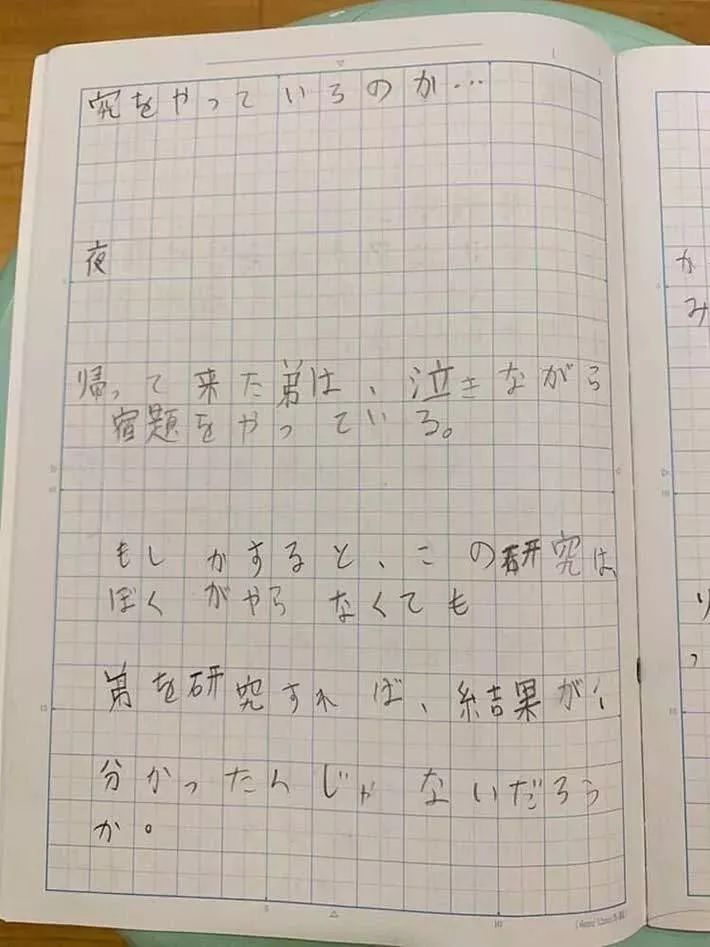 究をやっているのか…
夜
帰って来た弟は、泣きながら
宿題をやっている。
もしかすると、この研究は、
ぼくがやらなくても
弟を研究すれば、結果が
分かったんじゃないだろう
か。
か
み
り
っ